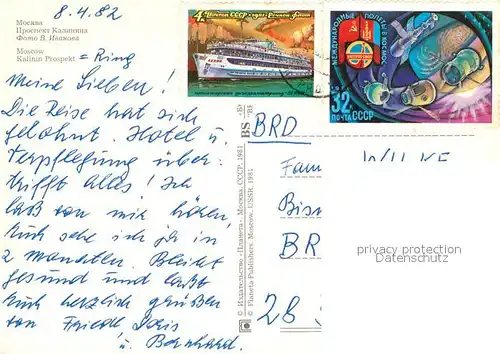 8.4.82
Москва
Проспект Калинина
Фото В. Иванова
Moscow
Kalinin Prospekt = Ring
Meine Lieben!
Die Reise hat sich
gelohnt. Hotel u.
Verpflegung über-
trifft alles! Ich
laß von mir hören,
Euch sehe ich ja in
2 Monaten. Bleibt
gesund und laßt
Euch herzlich grüßen
von Friedl, Doris
u. Bernhard.
4к Почта СССР 1981 Речной флот
МЕЖДУНАРОДНЫЕ ПОЛЕТЫ В КОСМОС
32к
ПОЧТА СССР
© Издательство «Планета». Москва. СССР, 1981
© Planeta Publishers. Moscow. USSR, 1981
BS
BRD
Fam
Bism
BR
28
privacy protection
Datenschutz